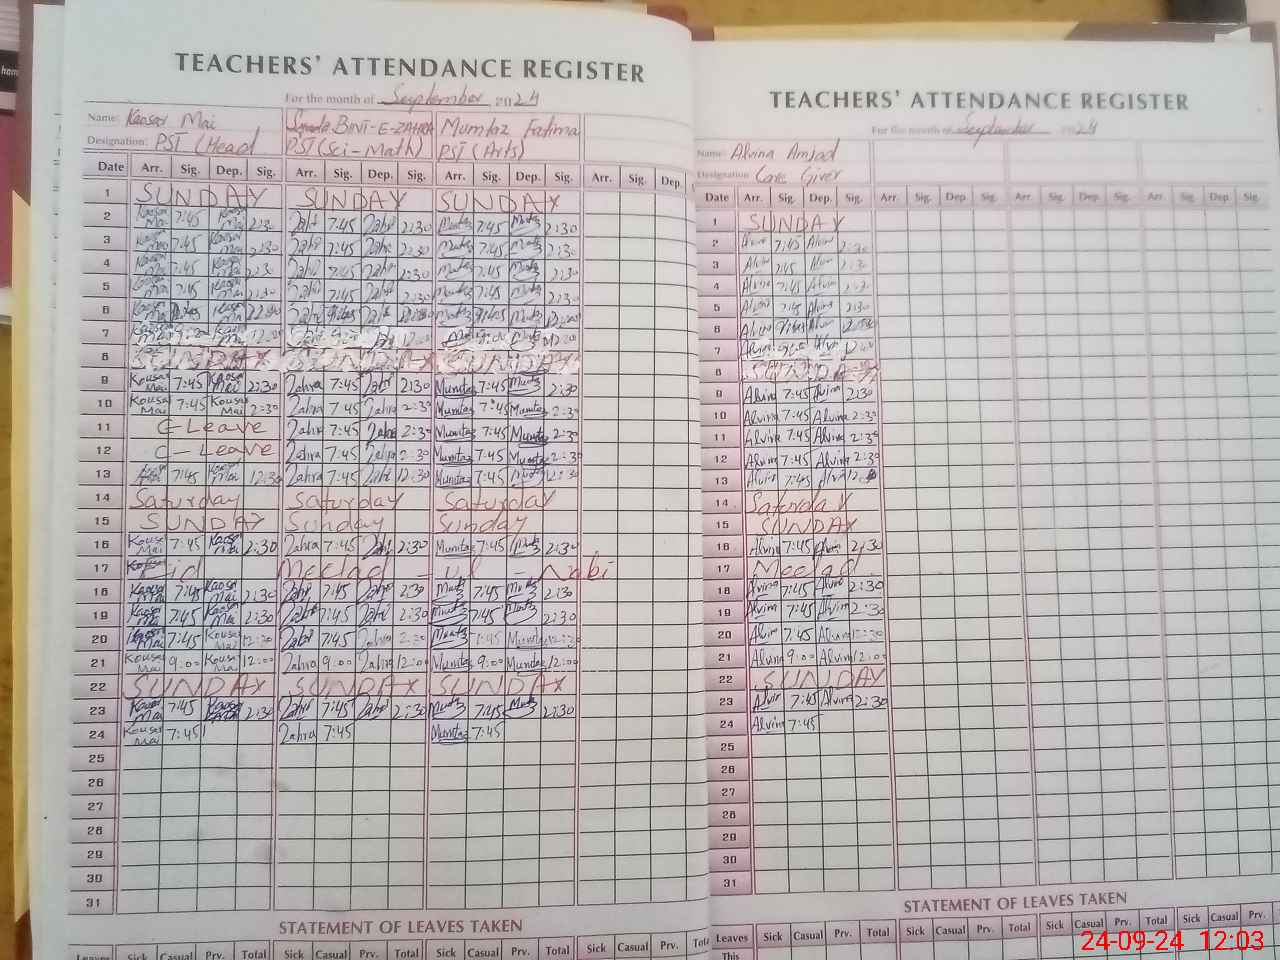 TEACHERS' ATTENDANCE REGISTER
For the month of September 2024
Name: Kaosar Mai BINT-E-ZAHRA Mumtaz Fatima
Designation: PST (Head PST (Sci-Math) PST (Arts)
Date Arr. Sig. Dep. Sig. Arr. Sig. Dep. Sig. Arr. Sig. Dep. Sig. Arr. Sig. Dep.
1 SUNDAY SUNDAY SUNDAY
2 Kaosar Mai 7:45 Kaosar Mai 2:30 Zahr 7:45 Zahr 2:30 Mumtz 7:45 Mumtz 2:30
3 Kaosar Mai 7:45 Kaosar Mai 2:30 Zahr 7:45 Zahr 2:30 Mumtz 7:45 Mumtz 2:30
4 Kaosar Mai 7:45 Kaosar Mai 2:30 Zahr 7:45 Zahr 2:30 Mumtz 7:45 Mumtz 2:30
5 Kaosar Mai 7:45 Kaosar Mai 2:30 Zahr 7:45 Zahr 2:30 Mumtz 7:45 Mumtz 2:30
6 Kaosar Mai Kaosar Mai
7 9:00 12:00 9:00 12:00 9:00 12:00
8 SUNDAY SUNDAY SUNDAY
9 Kousar Mai 7:45 Kaosar Mai 2:30 Zahra 7:45 Zahr 2:30 Mumtaz 7:45 Mumtz 2:30
10 Kousar Mai 7:45 Kousar Mai 2:30 Zahra 7:45 Zahra 2:30 Mumtaz 7:45 Mumtaz 2:30
11 C-Leave Zahra 7:45 Zahra 2:30 Mumtaz 7:45 Mumtaz 2:30
12 C-Leave Zahra 7:45 Zahra 2:30 Mumtaz 7:45 Mumtaz 2:30
13 7:45 Kaosar Mai 12:30 Zahra 7:45 Zahra 12:30 Mumtaz 7:45 Mumtz 12:30
14 Saturday Saturday Saturday
15 SUNDAY Sunday Sunday
16 Kousar Mai 7:45 Kaosar Mai 2:30 Zahra 7:45 Zahr 2:30 Mumtaz 7:45 Mumtz 2:30
17 Eid Meelad - ul - Nabi
18 Kaosar Mai 7:45 Kaosar Mai 2:30 Zahr 7:45 Zahr 2:30 Mumtz 7:45 Mumtz 2:30
19 Kaosar Mai 7:45 Kaosar Mai 2:30 Zahr 7:45 Zahr 2:30 Mumtz 7:45 Mumtz 2:30
20 Kaosar Mai 7:45 Kousar Mai 12:30 Zahr 7:45 Zahra Mumtz 7:45 Mumtaz 12:30
21 Kousar Mai 9:00 Kousar Mai 12:00 Zahra 9:00 Zahra 12:00 Mumtaz 9:00 Mumtaz 12:00
22 SUNDAY SUNDAY SUNDAY
23 Kaosar Mai 7:45 Kaosar Mai 2:30 Zahr 7:45 Zahr 2:30 Mumtz 7:45 Mumtz 2:30
24 Kousar Mai 7:45 Zahra 7:45 Mumtaz 7:45
25
26
27
28
29
30
31
STATEMENT OF LEAVES TAKEN
Leaves Sick Casual Prv. Total Sick Casual Prv. Total Sick Casual Prv. Total Sick Casual Prv.
TEACHERS' ATTENDANCE REGISTER
For the month of September 2024
Name: Alvina Amjad
Designation Care Giver
Date Arr. Sig. Dep. Sig. Arr. Sig. Dep. Sig. Arr. Sig. Dep. Sig. Arr. Sig. Dep. Sig.
1 SUNDAY
2 Alvina 7:45 Alvina 2:30
3 Alvina 7:45 Alvin 2:30
4 Alvina 7:45 Alvina 2:30
5 Alvina 7:45 Alvina 2:30
6 Alvina Alvina
7 Alvina
8 SUNDAY
9 Alvina 7:45 Alvina 2:30
10 Alvina 7:45 Alvina 2:30
11 Alvina 7:45 Alvina 2:30
12 Alvina 7:45 Alvina 2:30
13 Alvina 7:45 Alvina
14 Saturday
15 SUNDAY
16 Alvina 7:45 Alvin 2:30
17 Meelad
18 Alvina 7:45 Alvina 2:30
19 Alvina 7:45 Alvina 2:30
20 Alvin 7:45 Alvina 12:30
21 Alvina 9:00 Alvina 12:00
22 SUNDAY
23 Alvin 7:45 Alvina 2:30
24 Alvina 7:45
25
26
27
28
29
30
31
STATEMENT OF LEAVES TAKEN
Leaves Sick Casual Prv. Total Sick Casual Prv. Total Sick Casual Prv. Total Sick Casual Prv.
This
24-09-24 12:03